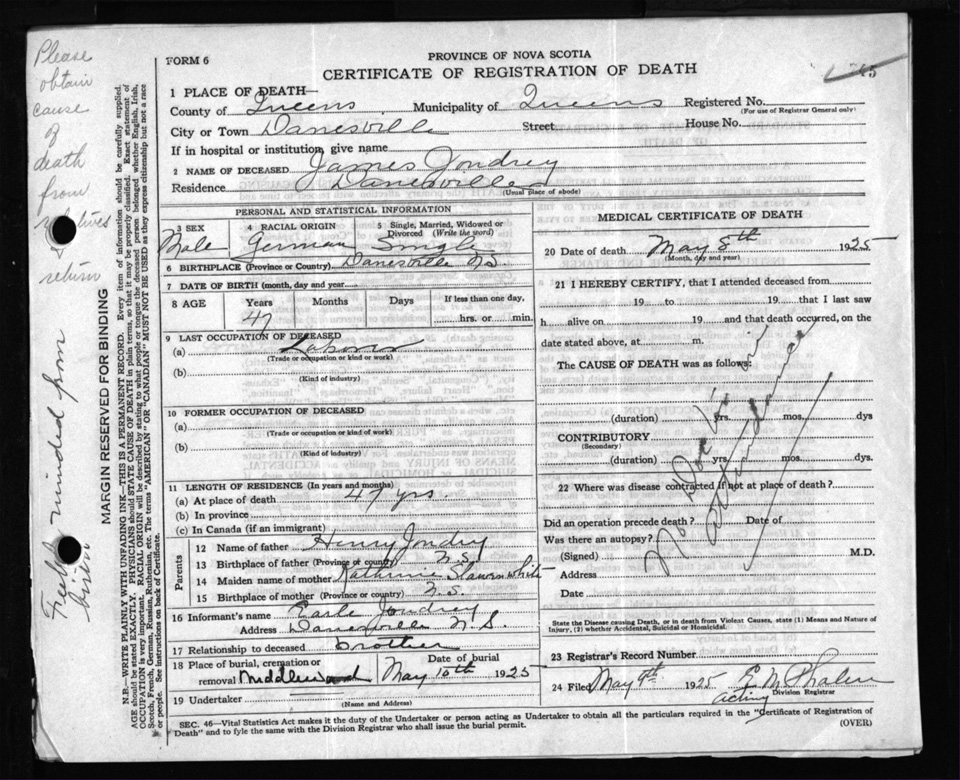 Please
obtain
cause
of
death
from
relatives
&
return
Feeble minded from
birth
MARGIN RESERVED FOR BINDING
N.B.—WRITE PLAINLY, WITH UNFADING INK—THIS IS A PERMANENT RECORD. Every item of information should be carefully supplied.
AGE should be stated EXACTLY. PHYSICIANS should STATE CAUSE OF DEATH in plain terms, so that it may be properly classified. Exact statement of
OCCUPATION is very important. RACIAL ORIGIN will be described by stating to what people or tongue the deceased person belonged whether English, Irish,
Scotch, French, German, Russian, Ruthenian, etc. The terms "AMERICAN" OR "CANADIAN" MUST NOT BE USED as they express citizenship but not a race
or people. See instructions on back of Certificate.
FORM 6
PROVINCE OF NOVA SCOTIA
CERTIFICATE OF REGISTRATION OF DEATH
1 PLACE OF DEATH—
County of Queens Municipality of Queens Registered No.
(For use of Registrar General only)
City or Town Danesville Street House No.
If in hospital or institution, give name
2 NAME OF DECEASED James Joudrey
Residence Danesville
(Usual place of abode)
PERSONAL AND STATISTICAL INFORMATION
3 SEX Male
4 RACIAL ORIGIN German
5 Single, Married, Widowed or
Divorced (Write the word) Single
6 BIRTHPLACE (Province or Country) Danesville N.S.
7 DATE OF BIRTH (month, day and year)
8 AGE Years Months Days If less than one day,
47 hrs. or min.
9 LAST OCCUPATION OF DECEASED
(a) Laborer
(Trade or occupation or kind or work)
(b)
(Kind of industry)
10 FORMER OCCUPATION OF DECEASED
(a)
(Trade or occupation or kind of work)
(b)
(Kind of industry)
11 LENGTH OF RESIDENCE (In years and months)
(a) At place of death 47 yrs.
(b) In province
(c) In Canada (if an immigrant)
Parents
12 Name of father Henry Joudry
13 Birthplace of father (Province or country) N.S.
14 Maiden name of mother Katherine
15 Birthplace of mother (Province or country) N.S.
16 Informant's name Earle Joudrey
Address Danesville N S.
17 Relationship to deceased brother
18 Place of burial, cremation or Date of burial
removal Middlewood May 10th 1925
19 Undertaker
(Name and Address)
MEDICAL CERTIFICATE OF DEATH
20 Date of death May 8th 1925
(Month, day and year)
21 I HEREBY CERTIFY, that I attended deceased from
19 to 19 that I last saw
h alive on 19 and that death occurred, on the
date stated above, at m.
The CAUSE OF DEATH was as follows:
(duration) yrs. mos. dys
CONTRIBUTORY
(Secondary)
(duration) yrs. mos. dys.
22 Where was disease contracted if not at place of death?
Did an operation precede death? Date of
Was there an autopsy?
(Signed) M.D.
Address
Date
No Doctor in
attendance
State the Disease causing Death, or in death from Violent Causes, state (1) Means and Nature of
Injury, (2) whether Accidental, Suicidal or Homicidal.
23 Registrar's Record Number
24 Filed May 9th 1925 E. M. Phalen
acting Division Registrar
SEC. 46—Vital Statistics Act makes it the duty of the Undertaker or person acting as Undertaker to obtain all the particulars required in the "Certificate of Registration of
Death" and to fyle the same with the Division Registrar who shall issue the burial permit. (OVER)